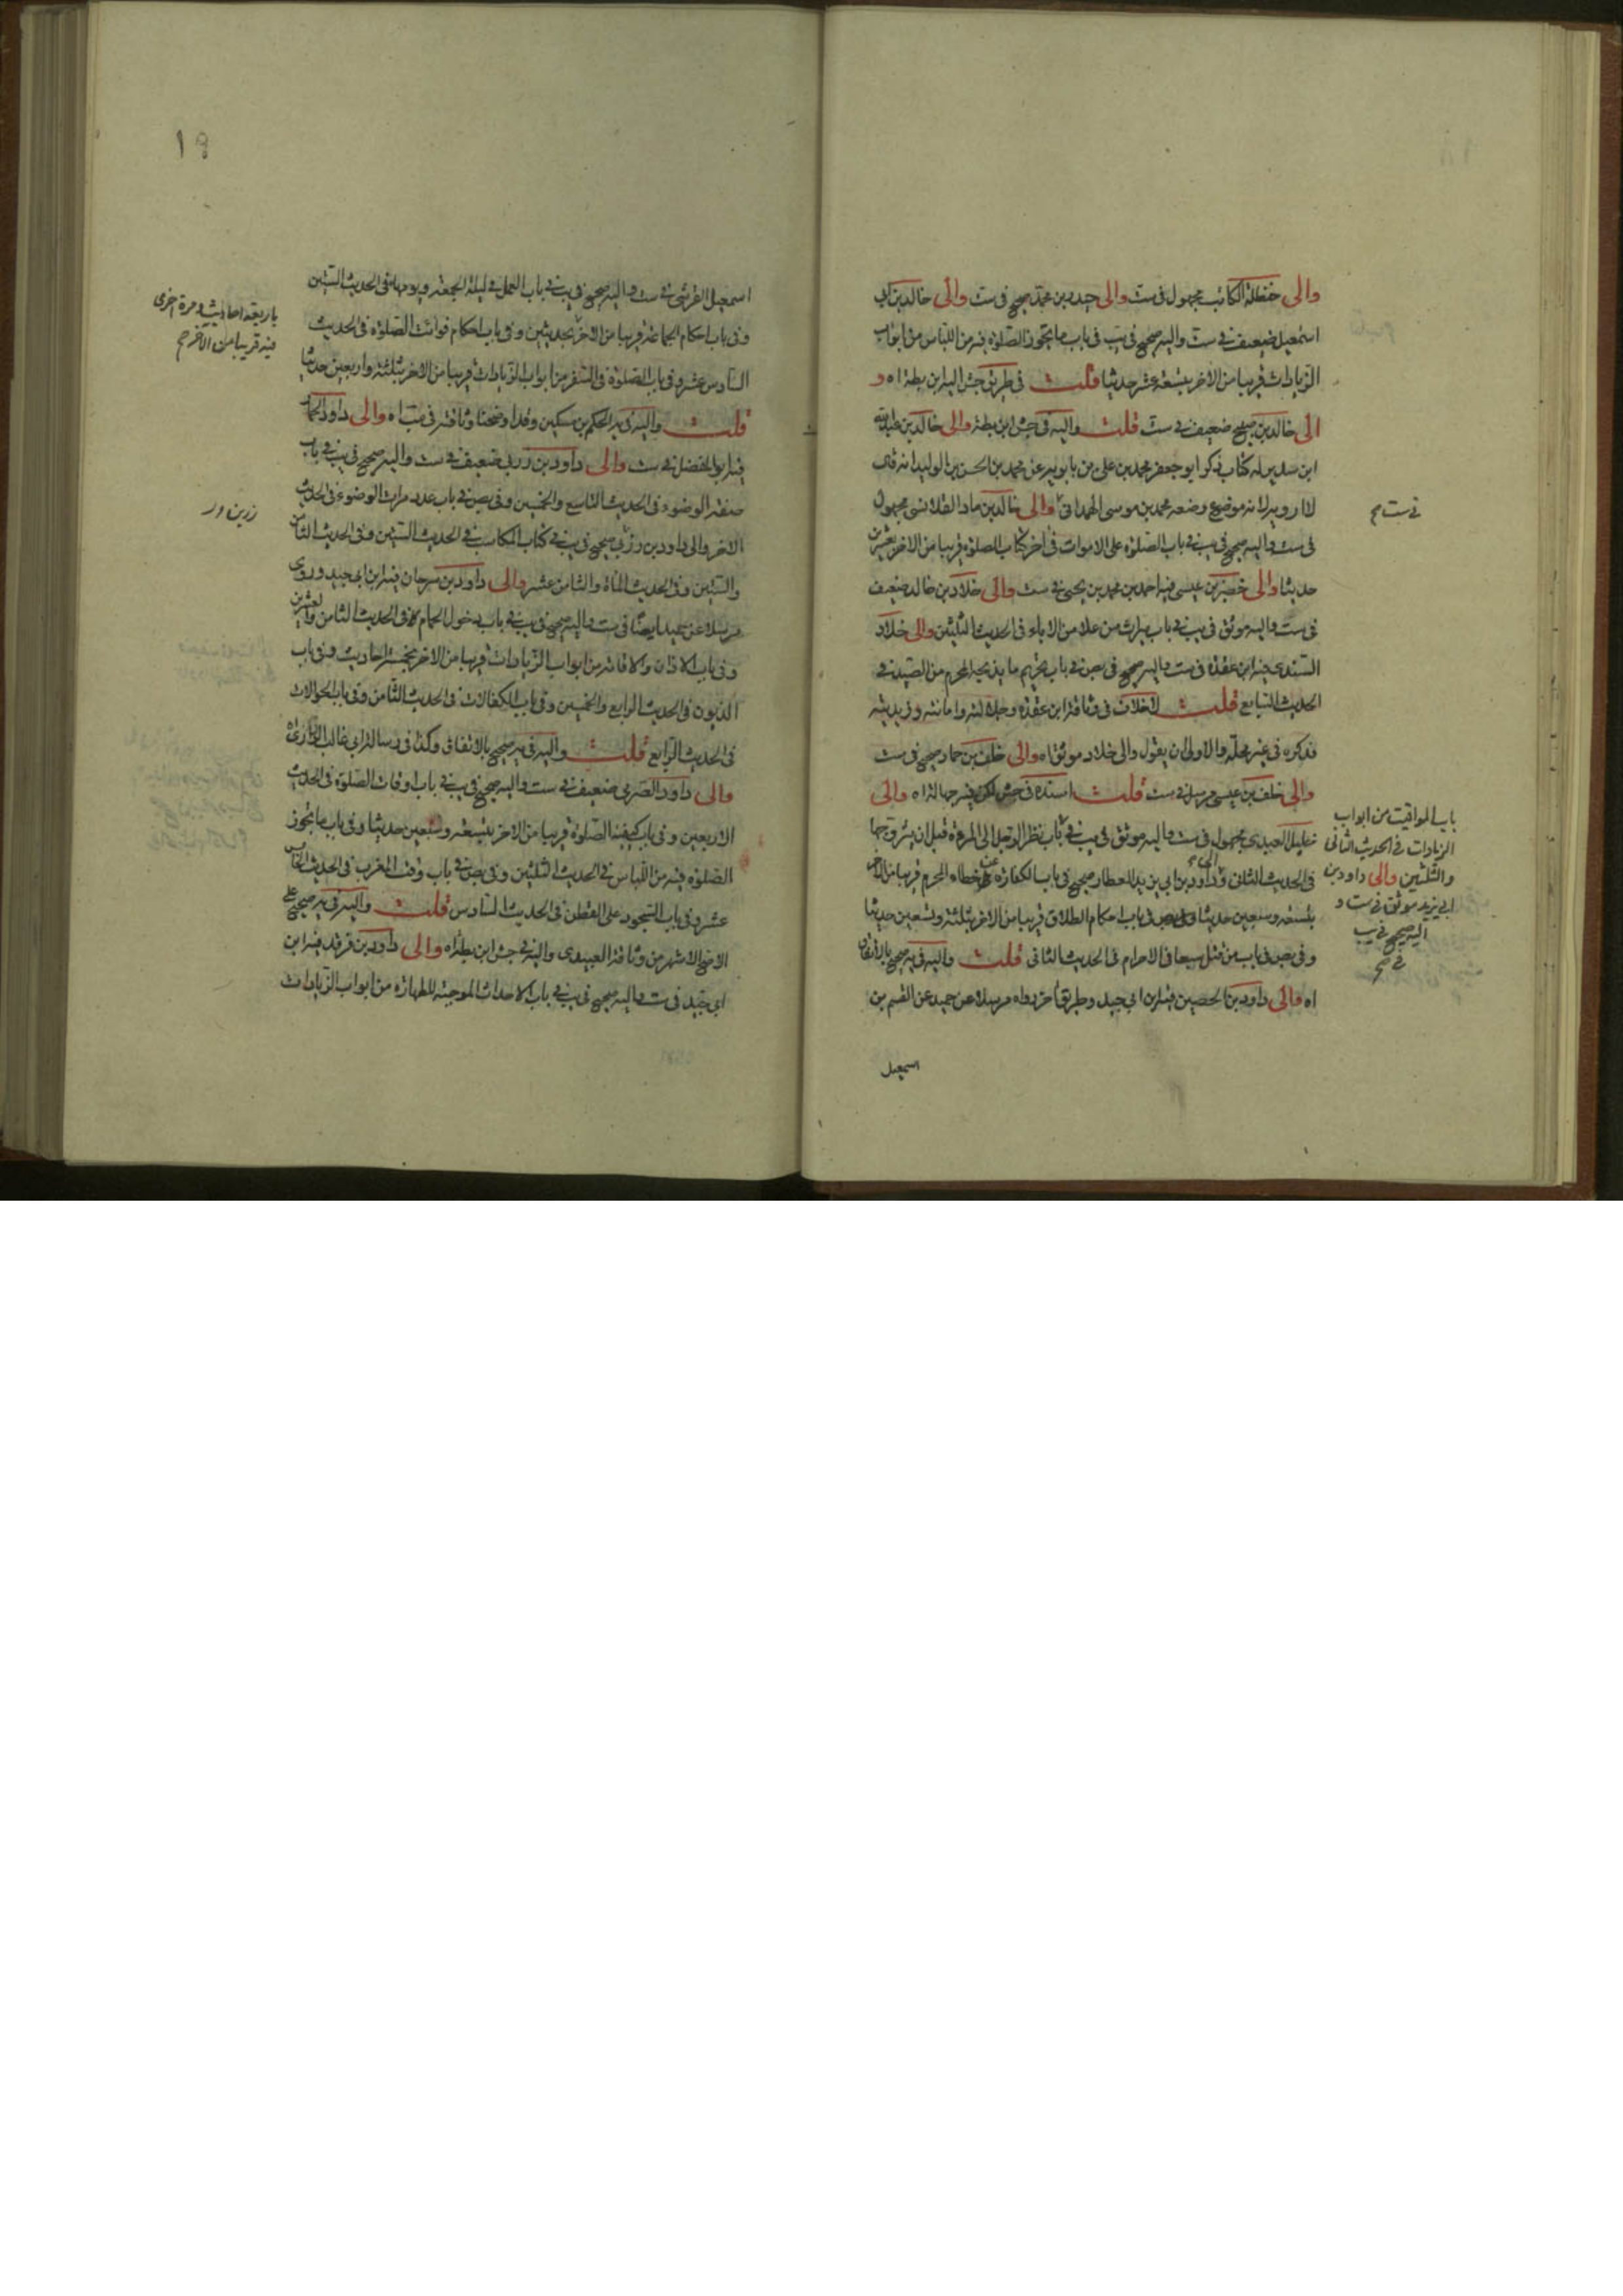 والى حنظلة الكاتب مجهول فى ست والى حيدر بن محمد صحيح فى ست والى خالد بن ابى
اسمعيل ضعيف فى ست واليه صحيح فى يب فى باب ما يجوز الصلوة فيه من اللباس من ابواب
الزيادات قريبا من الاخر بتسعة عشر حديثا قلت فى طريق جش اليه ابن بطة اه و
الى خالد بن صبيح ضعيف فى ست قلت واليه فى جش ابن بطة والى خالد بن عبد الله
ابن سدير له كتاب ذكر ابو جعفر محمد بن على بن بابويه عن محمد بن الحسن بن الوليد انه قال
لا ارويه لانه موضوع وضعه محمد بن موسى الهمدانى والى خالد بن ماد القلانسى مجهول
فى ست واليه صحيح فى يب فى باب الصلوة على الاموات فى اخر كتاب الصلوة قريبا من الاخر بعشرين
حديثا والى خضر بن عيسى فيه احمد بن محمد بن يحيى فى ست والى خلاد بن خالد ضعيف
فى ست واليه موثق فى يب فى باب ميراث من علا من الاباء فى الحديث الثلثين والى خلاد
السندى فيه ابن عقدة فى ست واليه صحيح فى بص فى باب تحريم ما يذبحه المحرم من الصيد فى
الحديث السابع قلت لاخلاف فى وثاقة ابن عقدة وجلالته وامانته وزيديته
فذكره فى غير محله والاولى ان يقول والى خلاد موثق اه والى خلف بن حماد صحيح فى ست
والى خلف بن عيسى مرسل فى ست قلت اسنده فى جش لكن فيه جهالة اه والى
خليل العبيدى مجهول فى ست واليه موثق فى يب فى باب نظر الرجل الى المرءة قبل ان يتزوجها
فى الحديث الثانى والى داود بن ابى يزيد العطار صحيح فى باب الكفارة عن خطاء المحرم قريبا من الاخر
بتسعة وسبعين حديثا وفى باب احكام الطلاق قريبا من الاخر بثلثة وتسعين حديثا
وفى بص فى باب من قتل سبعا فى الاحرام فى الحديث الثانى قلت واليه فى يه صحيح بالاتفاق
اه والى داود بن الحصين فيه ابن ابى جيد وطريق اخر رواه مرسلا عن حميد عن القسم بن
اسمعيل
فى ست مح
باب المواقيت من ابواب
الزيادات فى الحديث الثانى
والثلثين والى داود بن
ابى يزيد موثق فى ست و
اليه صحيح فى يب
فى مح
١٩
اسمعيل القرشى فى ست واليه صحيح فى يب فى باب العمل فى ليلة الجمعة ويومها فى الحديث الستين
وفى باب احكام الجماعة قريبا من الاخر بحديثين وفى باب احكام فوائت الصلوة فى الحديث
السادس عشر وفى باب الصلوة فى السفر من ابواب الزيادات قريبا من الاخر بثلثة واربعين حديثا
قلت واليه فى يه الحكم بن مسكين وقد اوضحنا وثاقته فى اه والى داود الحمار
فيه ابو المفضل فى ست والى داود بن زربى ضعيف فى ست واليه صحيح فى يب فى باب
صفة الوضوء فى الحديث التاسع والخمسين وفى بص فى باب عدد مرات الوضوء فى الحديث
الاخر والى داود بن رزين صحيح فى يب فى كتاب المكاسب فى الحديث الستين وفى الحديث الثامن
والستين وفى الحديث المأة والثامن عشر والى داود بن سرحان فيه ابن ابى جيد وروى
مرسلا عن حميد ايضا فى ست واليه صحيح فى يب فى باب دخول الحمام فى الحديث الثامن والعشرين
وفى باب الاذان والاقامة من ابواب الزيادات قريبا من الاخر بخمسة احاديث وفى باب
الديون فى الحديث الرابع والخمسين وفى باب الكفالات فى الحديث الثامن وفى باب الحوالات
فى الحديث الرابع قلت واليه فى يه صحيح بالاتفاق وكذا فى رسالة ابى غالب الزرارى اه
والى داود الصرمى ضعيف فى ست واليه صحيح فى يب فى باب اوقات الصلوة فى الحديث
الاربعين وفى باب كيفية الصلوة قريبا من الاخر بتسعة وسبعين حديثا وفى باب ما يجوز
الصلوة فيه من اللباس فى الحديث الثلثين وفى بص فى باب وقت المغرب فى الحديث الخامس
عشر وفى باب السجود على القطن فى الحديث السادس قلت واليه فى يه صحيح على
الاصح الاشهر من وثاقة العبيدى واليه فى جش ابن بطة اه والى داود بن فرقد فيه ابن
ابى جيد فى ست واليه صحيح فى يب فى باب الاحداث الموجبة للطهارة من ابواب الزيادات
باربعة احاديث ومرة اخرى
فيه قريبا من الاخر مح
زربى ور